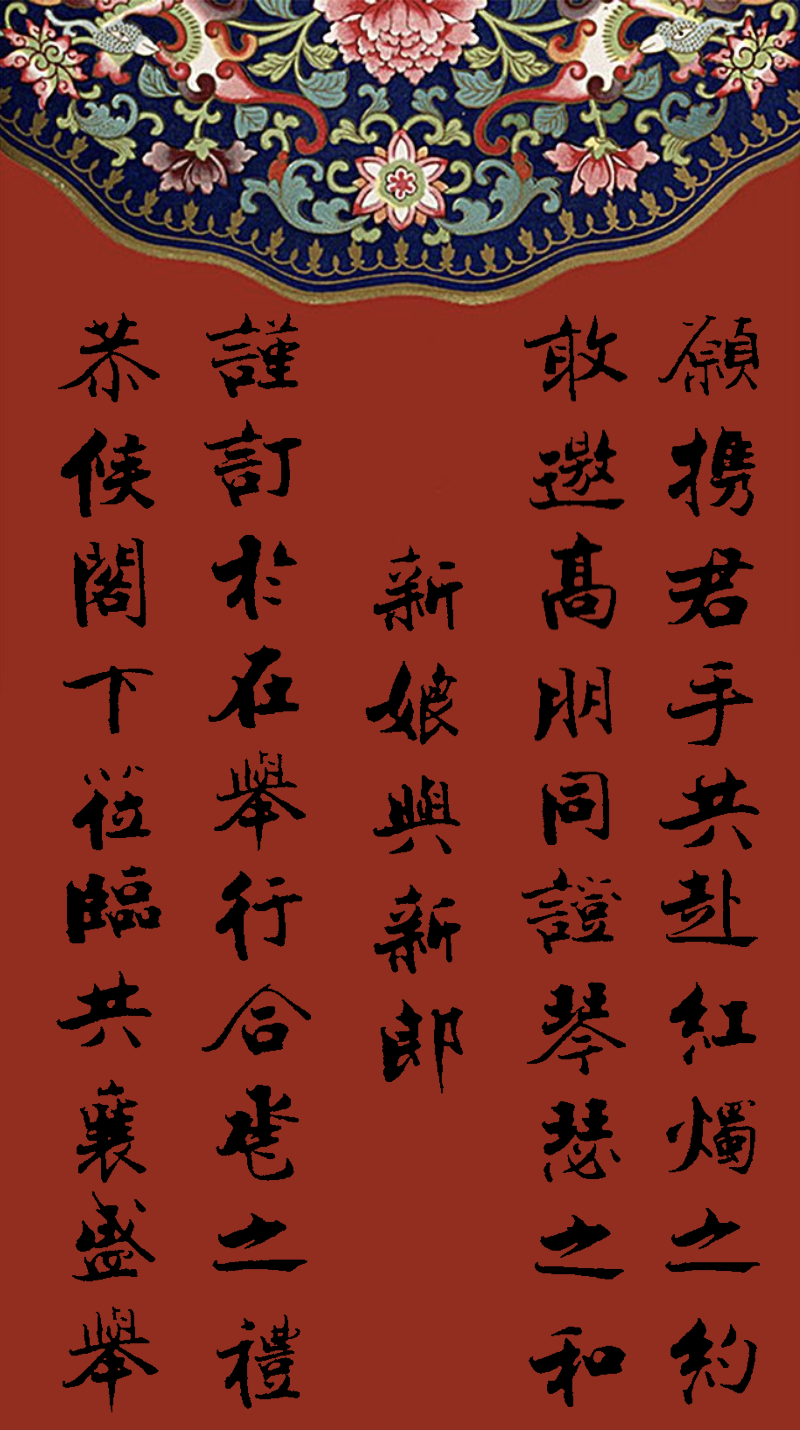 願携君手共赴紅燭之約
敢邀高朋同證琴瑟之和
新娘與新郎
謹訂於在舉行合卺之禮
恭候閣下蒞臨共襄盛舉